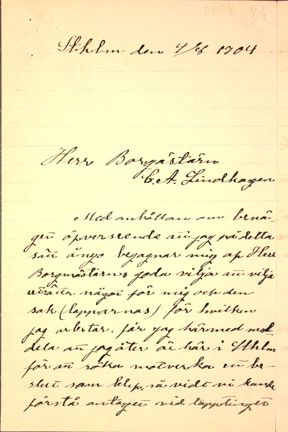 1904 4/2
Sthlm den 4/2 1904
Herr Borgmästarn
C. A. Lindhagen
Med anhållan om benä-
get öfverseende att jag på detta
sätt ånyo begagnar mig af Herr
Borgmästarns goda vilja att vilja
uträtta något för mig och den
sak (lapparnas) för hvilken
jag arbetar, får jag härmed med-
dela att jag åter är här i Sthlm
för att söka motverka en be-
slut som blef, så vidt vi kunde
förstå antaget vid lapptinget